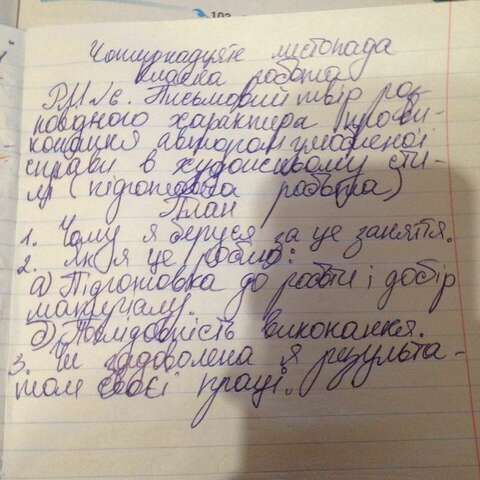 Чотирнадцяте листопада
Класна робота
РМ №6. Письмовий твір роз-
повідного характера про ви-
конання автором улюбленої
справи в художньому сти-
лі (підготовча робота)
План
1. Чому я беруся за це заняття.
2. Як я це роблю:
а) Підготовка до роботи і добір
матеріалу.
б) Послідовність виконання.
3. Чи задоволена я результа-
том своєї праці.